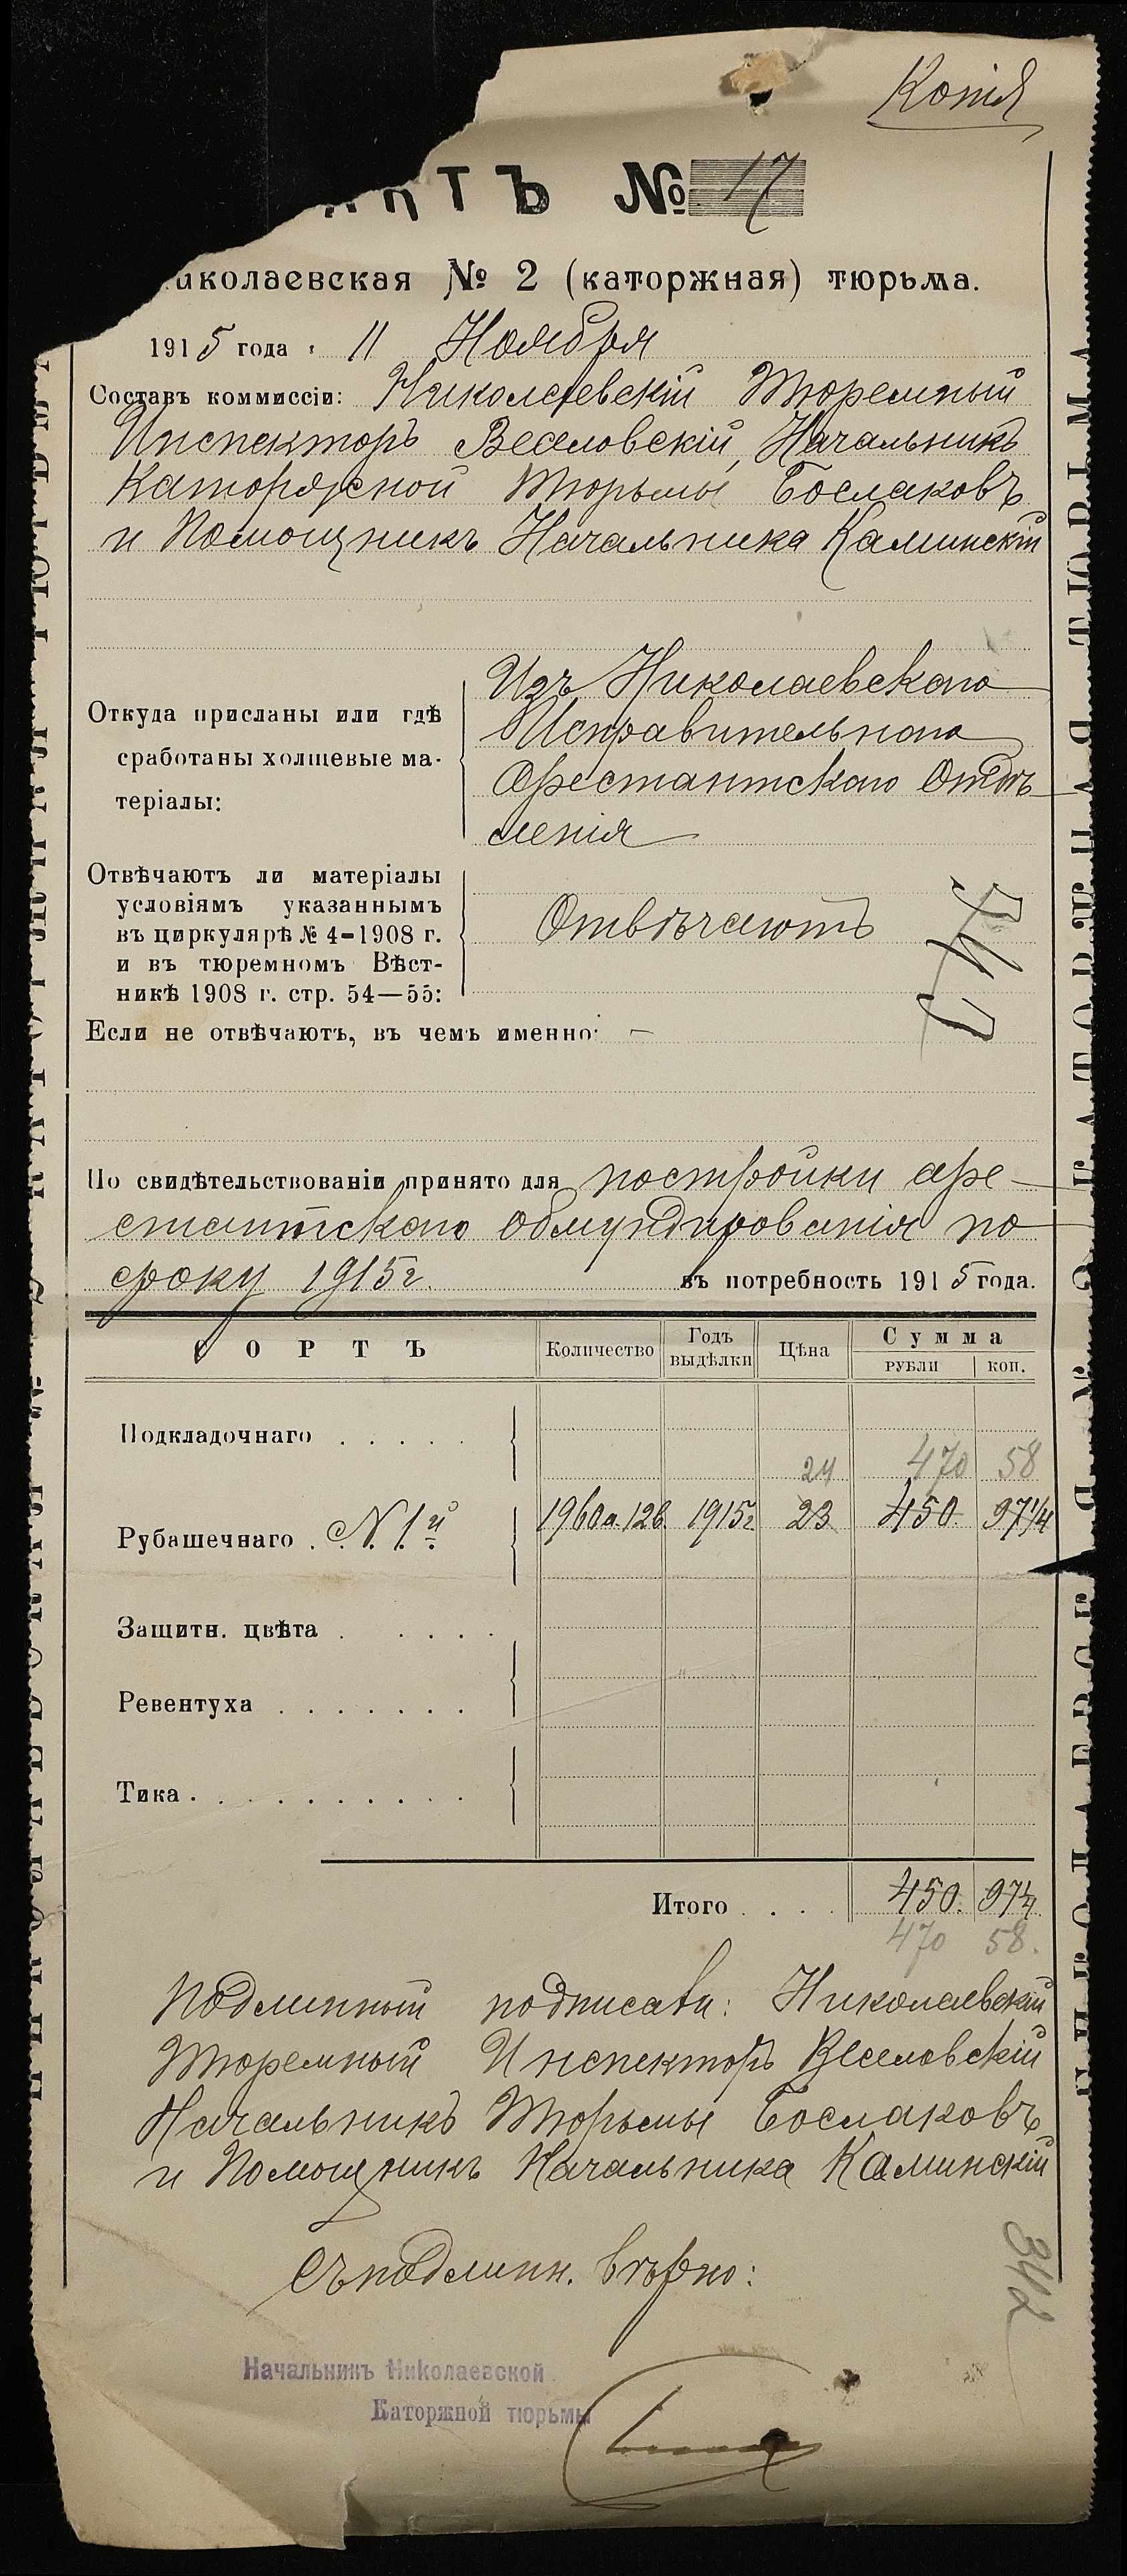 Копія
АКТЪ № 17
Николаевская № 2 (каторжная) тюрьма.
1915 года 11 Ноября
Составъ коммиссіи: Николаевскій Тюремный
Инспекторъ Веселовскій, Начальникъ
Каторжной Тюрьмы Бослаковъ
и Помощникъ Начальника Каминскій
Откуда присланы или гдѣ сработаны холщевые матеріалы:
Изъ Николаевскаго
Исправительнаго
Арестантскаго Отдѣ-
ленія
Отвѣчаютъ ли матеріалы
условіямъ указаннымъ
въ циркулярѣ № 4-1908 г.
и въ тюремномъ Вѣст-
никѣ 1908 г. стр. 54—55:
Отвѣчаютъ
Если не отвѣчаютъ, въ чемъ именно: —
По свидѣтельствованіи принято для постройки аре-
стантскаго обмундированія по
сроку 1915 г. въ потребность 1915 года.
СОРТЪ Количество Годъ выдѣлки Цѣна Сумма рубли коп.
Подкладочнаго . . . . .
24 470 58
Рубашечнаго . № 1й 1960 а. 12 в. 1915 г. 23 450. 97 1/4
Защитн. цвѣта . . . . .
Ревентуха . . . . . . .
Тика . . . . . . . . . .
Итого . . . . 450. 97 1/4
470 58.
Подлинный подписали: Николаевскій
Тюремный Инспекторъ Веселовскій
Начальникъ Тюрьмы Бослаковъ
и Помощникъ Начальника Каминскій
Съ подлинн. вѣрно:
342
Начальникъ Николаевской
Каторжной тюрьмы